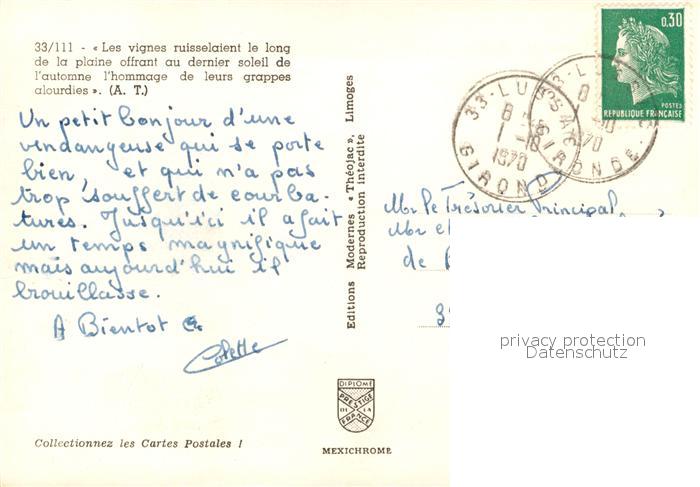 33/111 - « Les vignes ruisselaient le long
de la plaine offrant au dernier soleil de
l'automne l'hommage de leurs grappes
alourdies ». (A. T.)
Un petit bonjour d'une
vendangeuse qui se porte
bien, et qui n'a pas
trop souffert de courba-
tures. Jusqu'ici il a fait
un temps magnifique
mais aujourd'hui il
brouillasse.
A Bientot
Colette
Collectionnez les Cartes Postales !
Editions Modernes « Théojac », Limoges
Reproduction interdite
DIPLOME
PRESTIGE
DE LA
FRANCE
MEXICHROME
0,30
POSTES
REPUBLIQUE FRANÇAISE
33-LU
8 H
1-10
1970
GIRONDE
33-L
8
1970
GIRONDE
Mr le Trésorier Principal
Mr et
de
privacy protection
Datenschutz